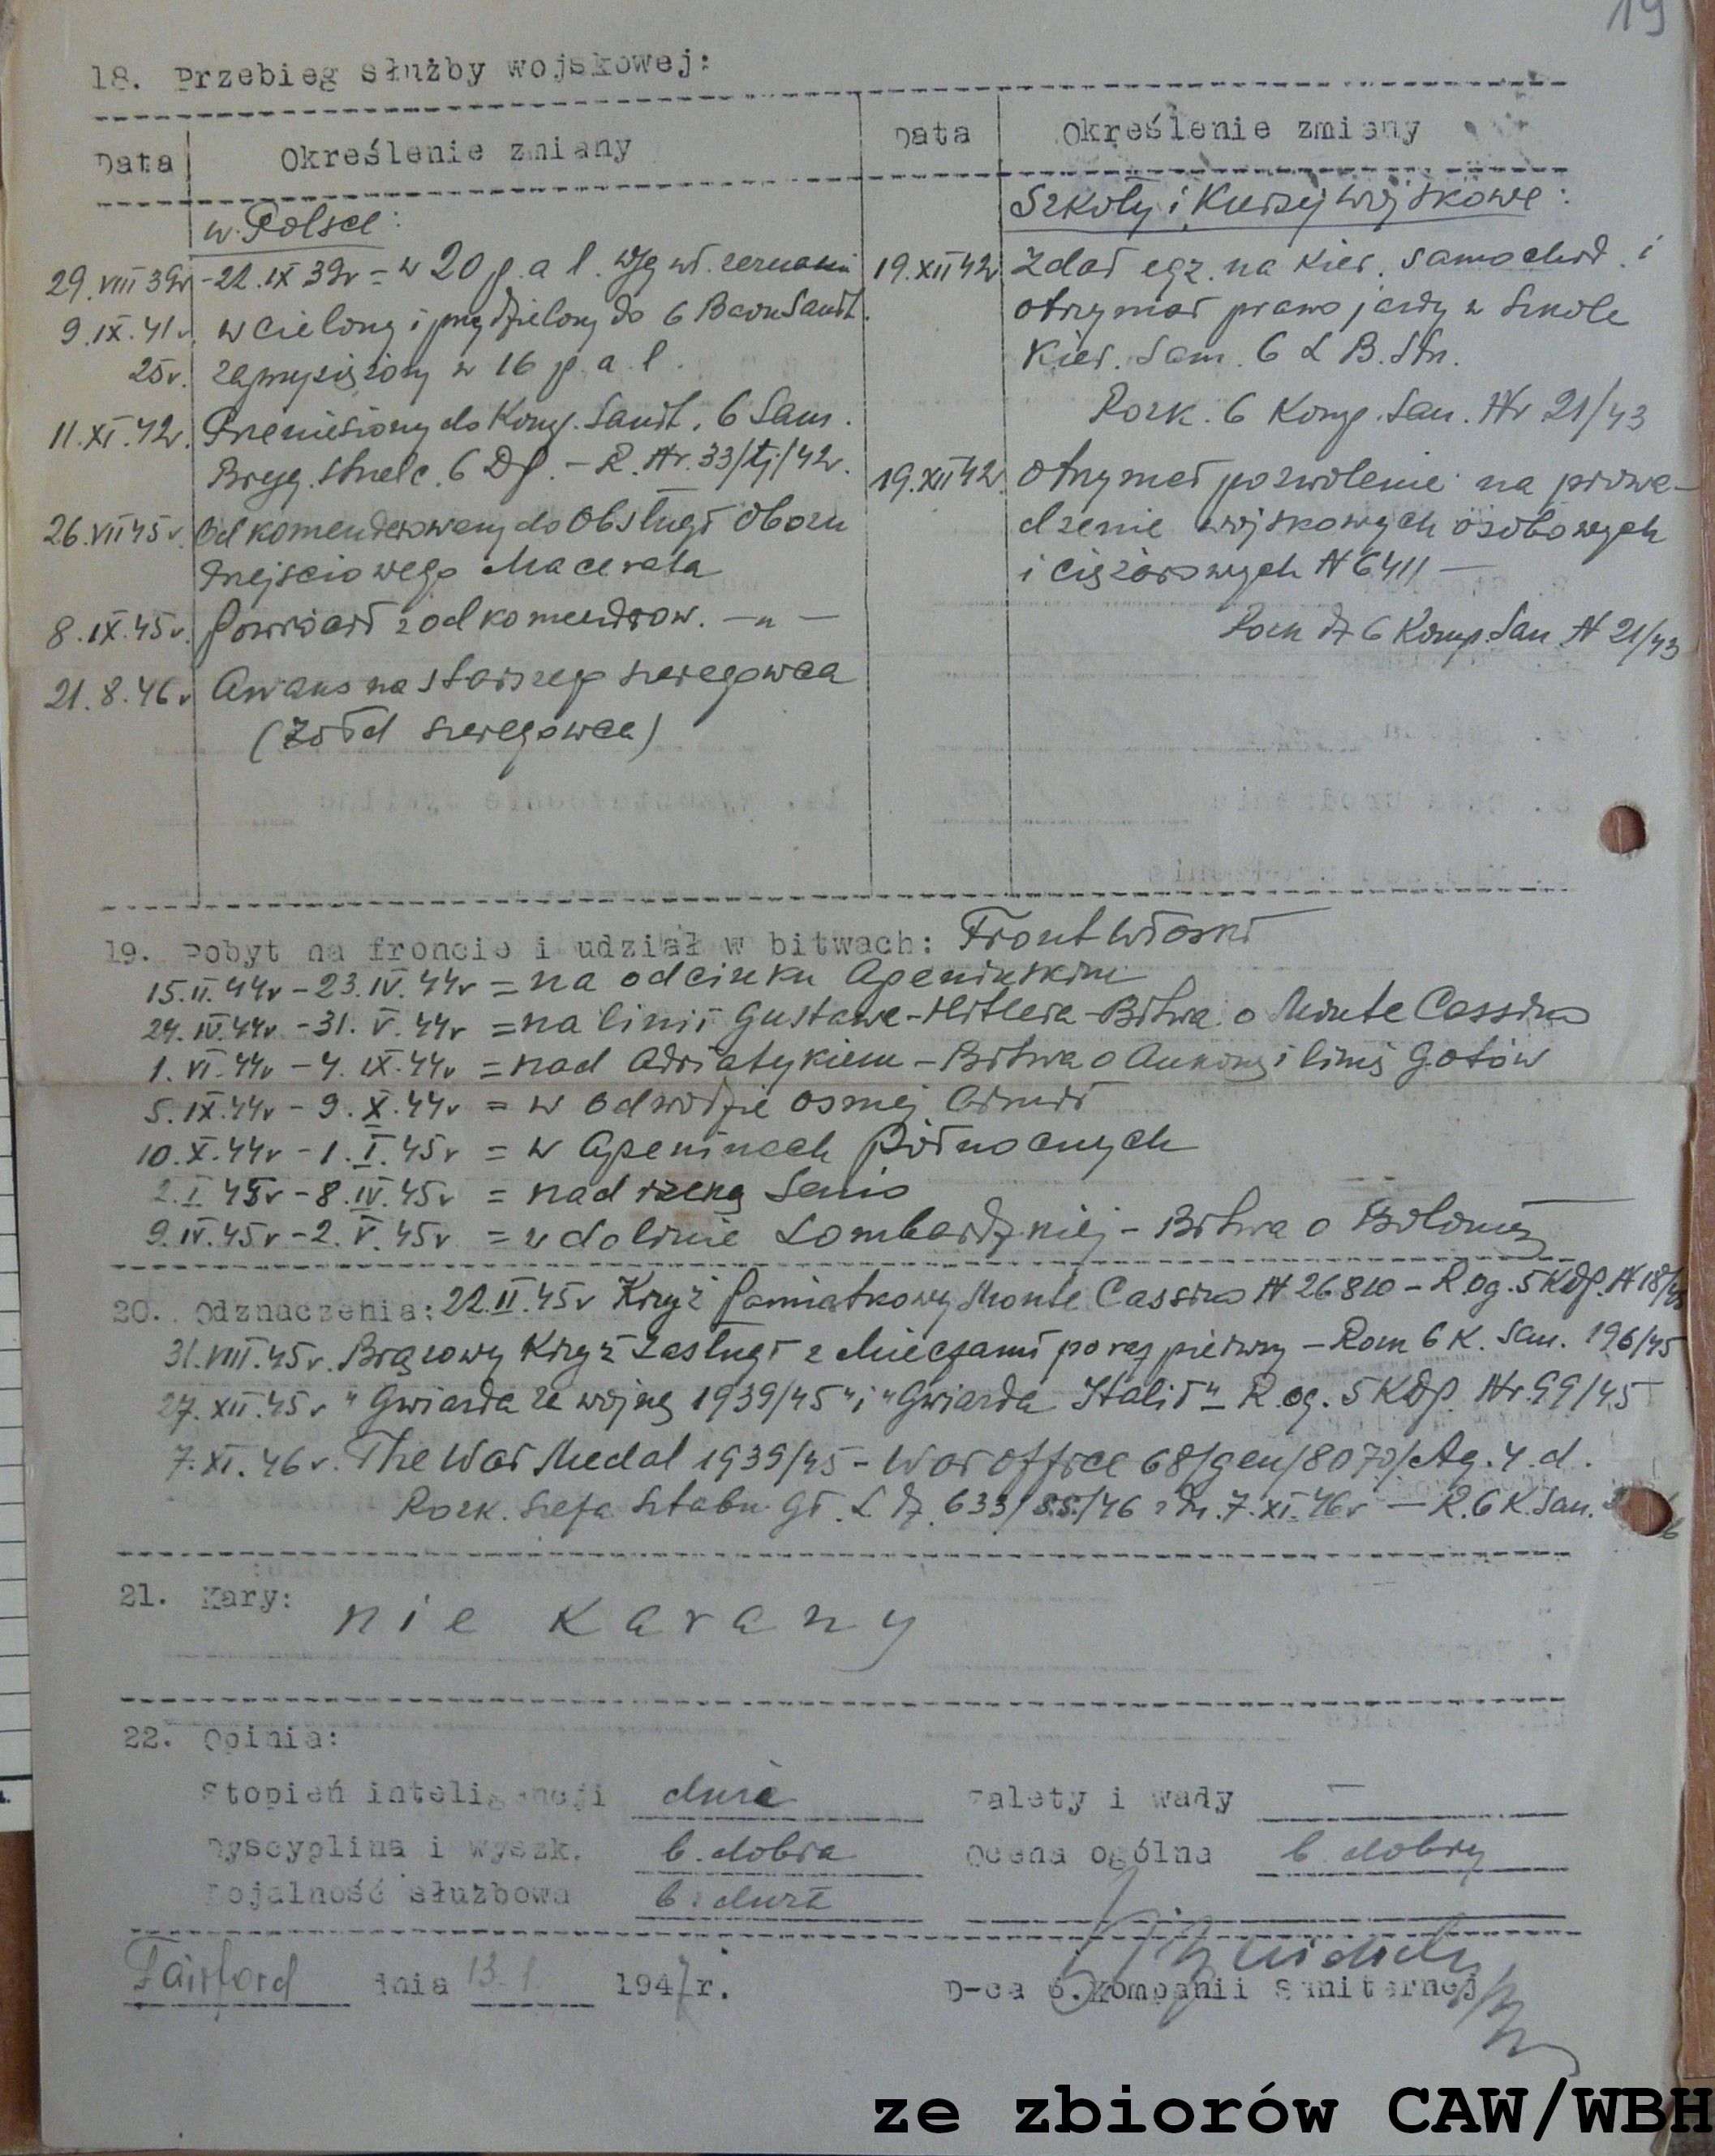 19
18. Przebieg służby wojskowej:
Data Określenie zmiany
w Polsce:
29.VIII 39r - 22.IX 39r = w 20 p.a l. wg wł. zeznania
9.IX.41r. wcielony i przydzielony do 6 Baonu Sanit.
25r. zaprzysiężony w 16 p.a.l.
11.XI.42r. Przeniesiony do Komp. Sanit. 6 Sam.
Bryg. Strzelc. 6 DP. - R. Nr. 33/tj/42r.
26.VII 45r. Odkomenderowany do Obsługi Obozu
Przejściowego Macerata
8.IX.45r. Powrócił z odkomenderow. - " -
21.8.46r Awans na starszego szeregowca
(Żołd szeregowca)
Data Określenie zmiany
Szkoły i Kursy wojskowe:
19.XII 42r Zdał egz. na kier. samochod. i
otrzymał prawo jazdy w Szkole
Kier. Sam. 6 L B. Strz.
Rozk. 6 Komp. San. Nr 21/43
19.XII 42r. otrzymał pozwolenie na prowa-
dzenie wojskowych osobowych
i ciężarowych N 6411 -
Rozk dz 6 Komp. San N 21/43
19. Pobyt na froncie i udział w bitwach: Front Włoski
15.II.44r - 23.IV.44r = na odcinku Apenińskim
24.IV.44r - 31.V.44r = na linii Gustawa - Hitlera - Bitwa o Monte Cassino
1.VI.44r - 4.IX.44r = nad Adriatykiem - Bitwa o Ankonę i linię Gotów
5.IX.44r - 9.X.44r = w odwodzie ósmej Armii
10.X.44r - 1.I.45r = w Apeninach Północnych
2.I 45r - 8.IV.45r = nad rzeką Senio
9.IV.45r - 2.V.45r = w dolinie Lombardzkiej - Bitwa o Bolonię
20. Odznaczenia: 22.II.45r Krzyż Pamiątkowy Monte Cassino N 26810 - R og. 5 KDP. N 18/45
31.VIII.45r. Brązowy Krzyż Zasługi z Mieczami po raz pierwszy - Rozk 6 K. San. 196/45
27.XII.45r "Gwiazda za wojnę 1939/45" i "Gwiazda Italii" - R. og. 5 KDP. Nr. 99/45
7.XI.46r. The War Medal 1939/45 - War Office 68/gen/8070/Ag.4.d.
Rozk. Szefa Sztabu Gł. L dz. 633/S.S./46 z dn. 7.XI.46r - R. 6 K. San.
21. Kary: nie karany
22. Opinia:
Stopień inteligencji duża Zalety i wady -
Dyscyplina i wyszk. b. dobra Ocena ogólna b. dobry
Lojalność służbowa b. duża
Fairford dnia 13.1 1947r. D-ca 6. Kompanii Sanitarnej
ze zbiorów CAW/WBH